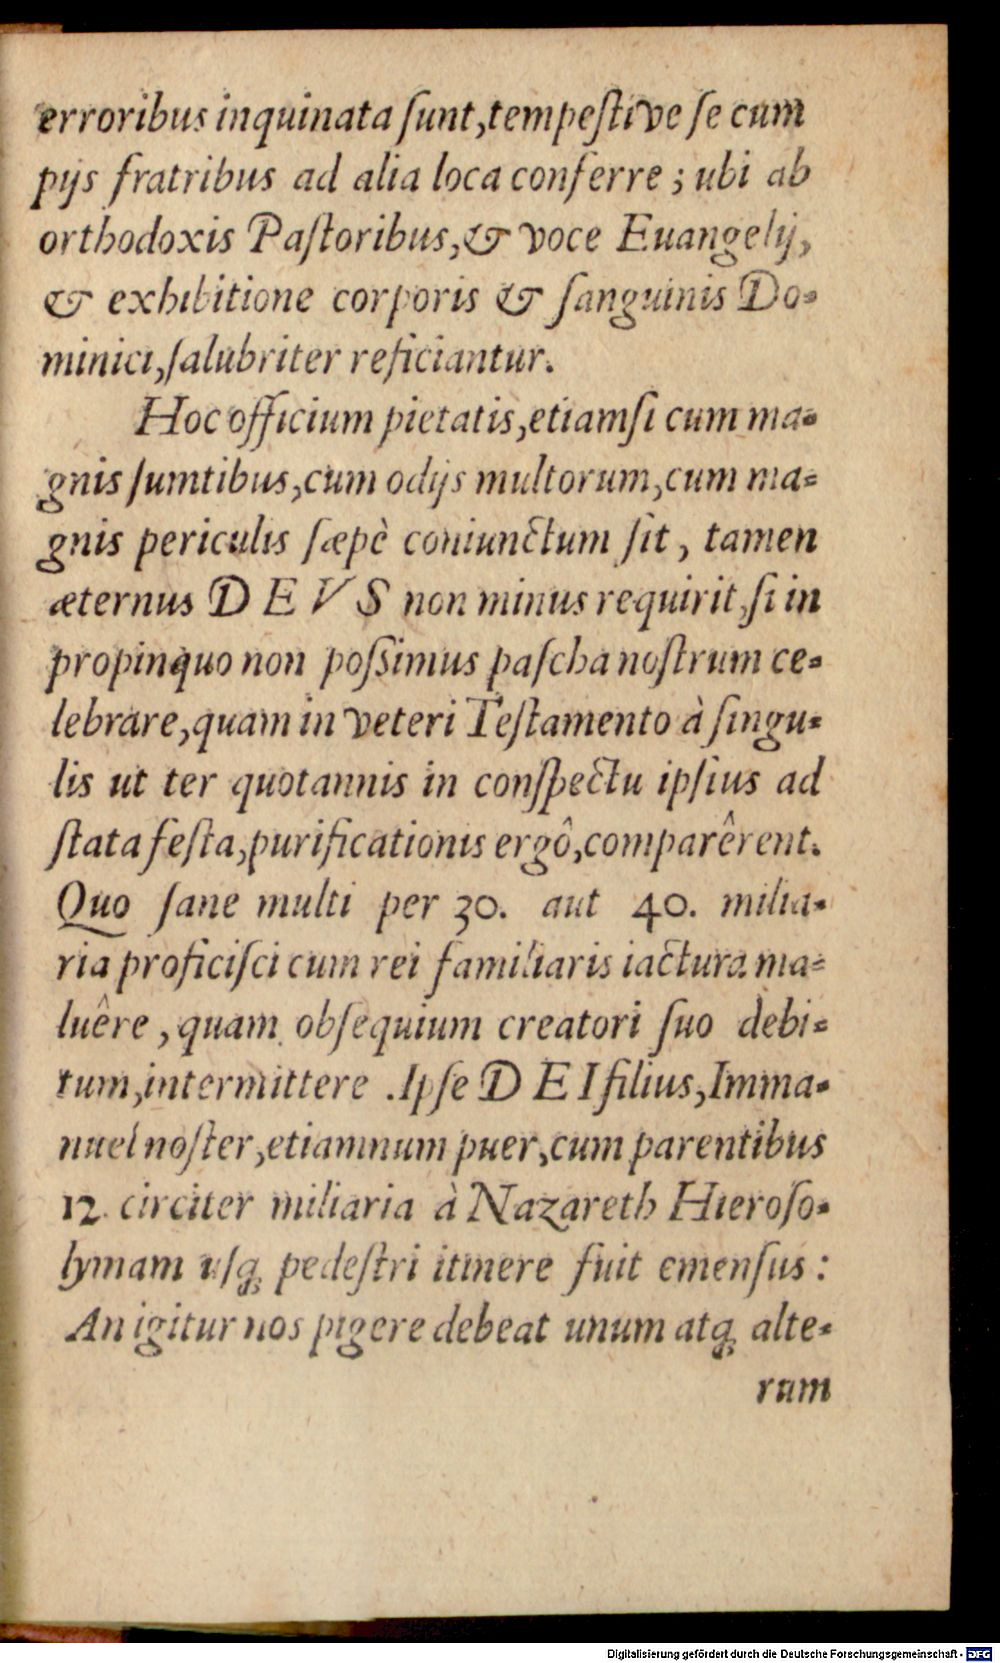 erroribus inquinata ſunt, tempeſtive ſe cum
pijs fratribus ad alia loca conferre; ubi ab
orthodoxis Paſtoribus, & voce Euangelij,
& exhibitione corporis & ſanguinis Do-
minici, ſalubriter reficiantur.
Hoc officium pietatis, etiamſi cum ma-
gnis ſumtibus, cum odijs multorum, cum ma-
gnis periculis ſæpè coniunctum ſit, tamen
æternus DEVS non minus requirit, ſi in
propinquo non poſſimus paſcha noſtrum ce-
lebrare, quam in veteri Teſtamento à ſingu-
lis ut ter quotannis in conſpectu ipſius ad
ſtata feſta, purificationis ergô, comparêrent.
Quo ſane multi per 30. aut 40. milia-
ria proficiſci cum rei familiaris iactura ma-
luêre, quam obſequium creatori ſuo debi-
tum, intermittere. Ipſe DEI filius, Imma-
nuel noſter, etiamnum puer, cum parentibus
12. circiter miliaria à Nazareth Hieroſo-
lymam uſq; pedeſtri itinere fuit emenſus:
An igitur nos pigere debeat unum atq; alte-
rum
Digitalisierung gefördert durch die Deutsche Forschungsgemeinschaft - DFG